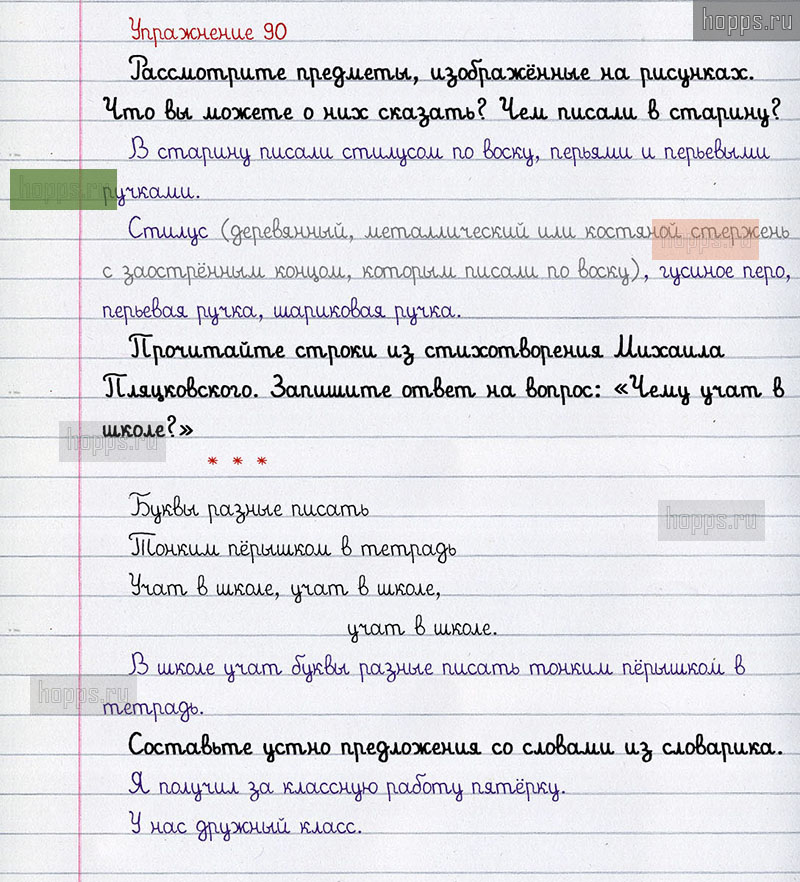 hopps.ru
Упражнение 90
Рассмотрите предметы, изображённые на рисунках.
Что вы можете о них сказать? Чем писали в старину?
В старину писали стилусом по воску, перьями и перьевыми
hopps.ru
ручками.
Стилус (деревянный, металлический или костяной стержень
hopps.ru
с заострённым концом, которым писали по воску), гусиное перо,
перьевая ручка, шариковая ручка.
Прочитайте строки из стихотворения Михаила
Пляцковского. Запишите ответ на вопрос: «Чему учат в
школе?»
hopps.ru
* * *
Буквы разные писать
hopps.ru
Тонким пёрышком в тетрадь
Учат в школе, учат в школе,
учат в школе.
В школе учат буквы разные писать тонким пёрышком в
hopps.ru
тетрадь.
Составьте устно предложения со словами из словарика.
Я получил за классную работу пятёрку.
У нас дружный класс.